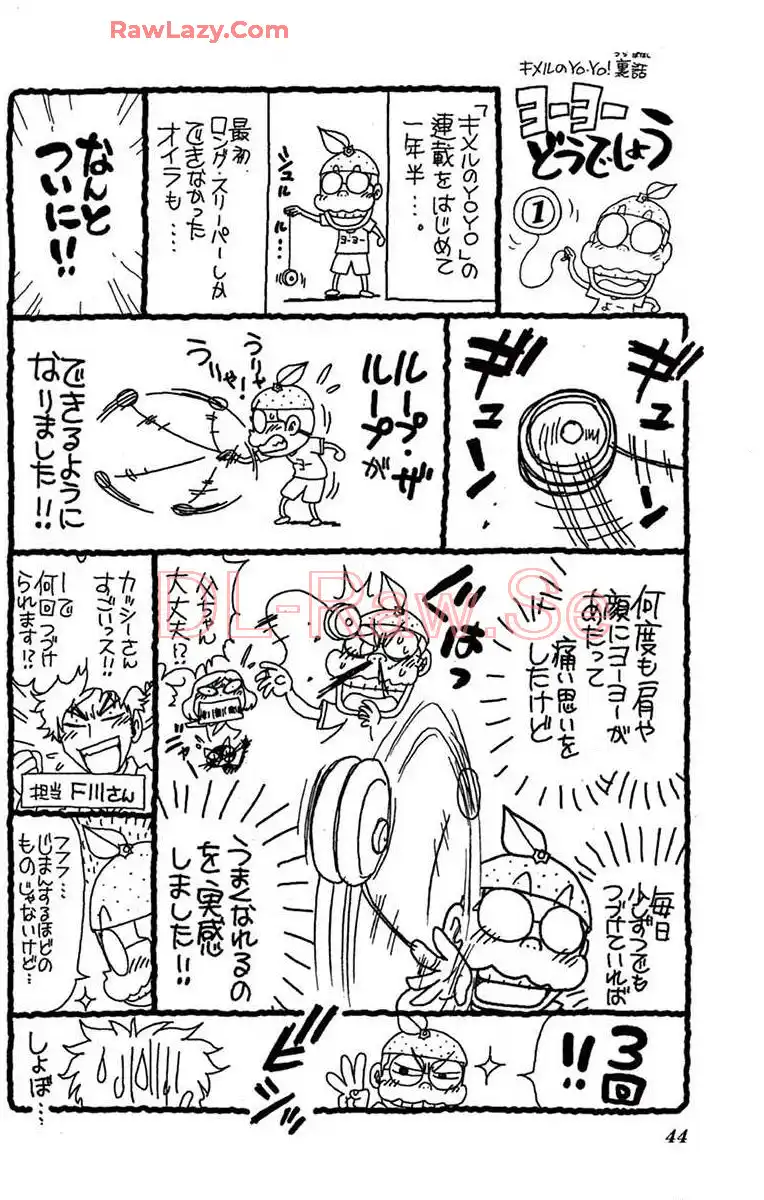 RawLazy.Com
キメルのYO・YO!裏話
うらばなし
ヨーヨー
どうでしょう
1
よー
「キメルのYOYO」の
連載をはじめて
一年半…。
シュルル…
ヨーヨー
最初
ロング・スリーパーしか
できなかった
オイラも……
なんと
ついに!!
ギューン
ギューン
ループ・ザ・
ループが
うりゃ
うりゃ!
ヨー
できるように
なりました!!
何度も肩や
顔にヨーヨーが
あたって
痛い思いを
したけど
バキッ
父ちゃん
大丈夫!?
ニャー
DL-Raw.Se
毎日
少しずつでも
つづけていれば
うまくなれるの
を、実感
しました!!
カッシーさん
すごいっス!!
一で
何回つづけ
られます!?
担当F川さん
フフフ…
じまんするほどの
ものじゃないけど…
3回
!!
ビシッ
しょぼ…
44